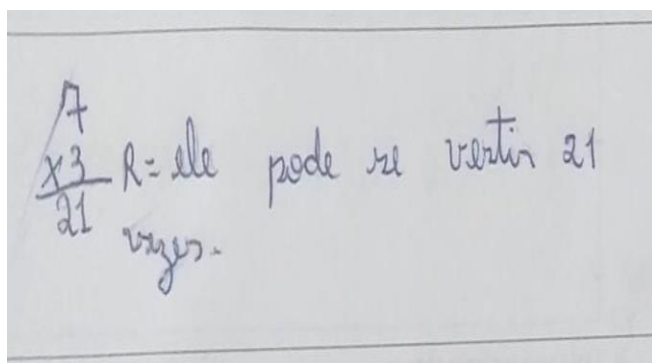 7
x3 R= ele pode se vestir 21
21
vezes.